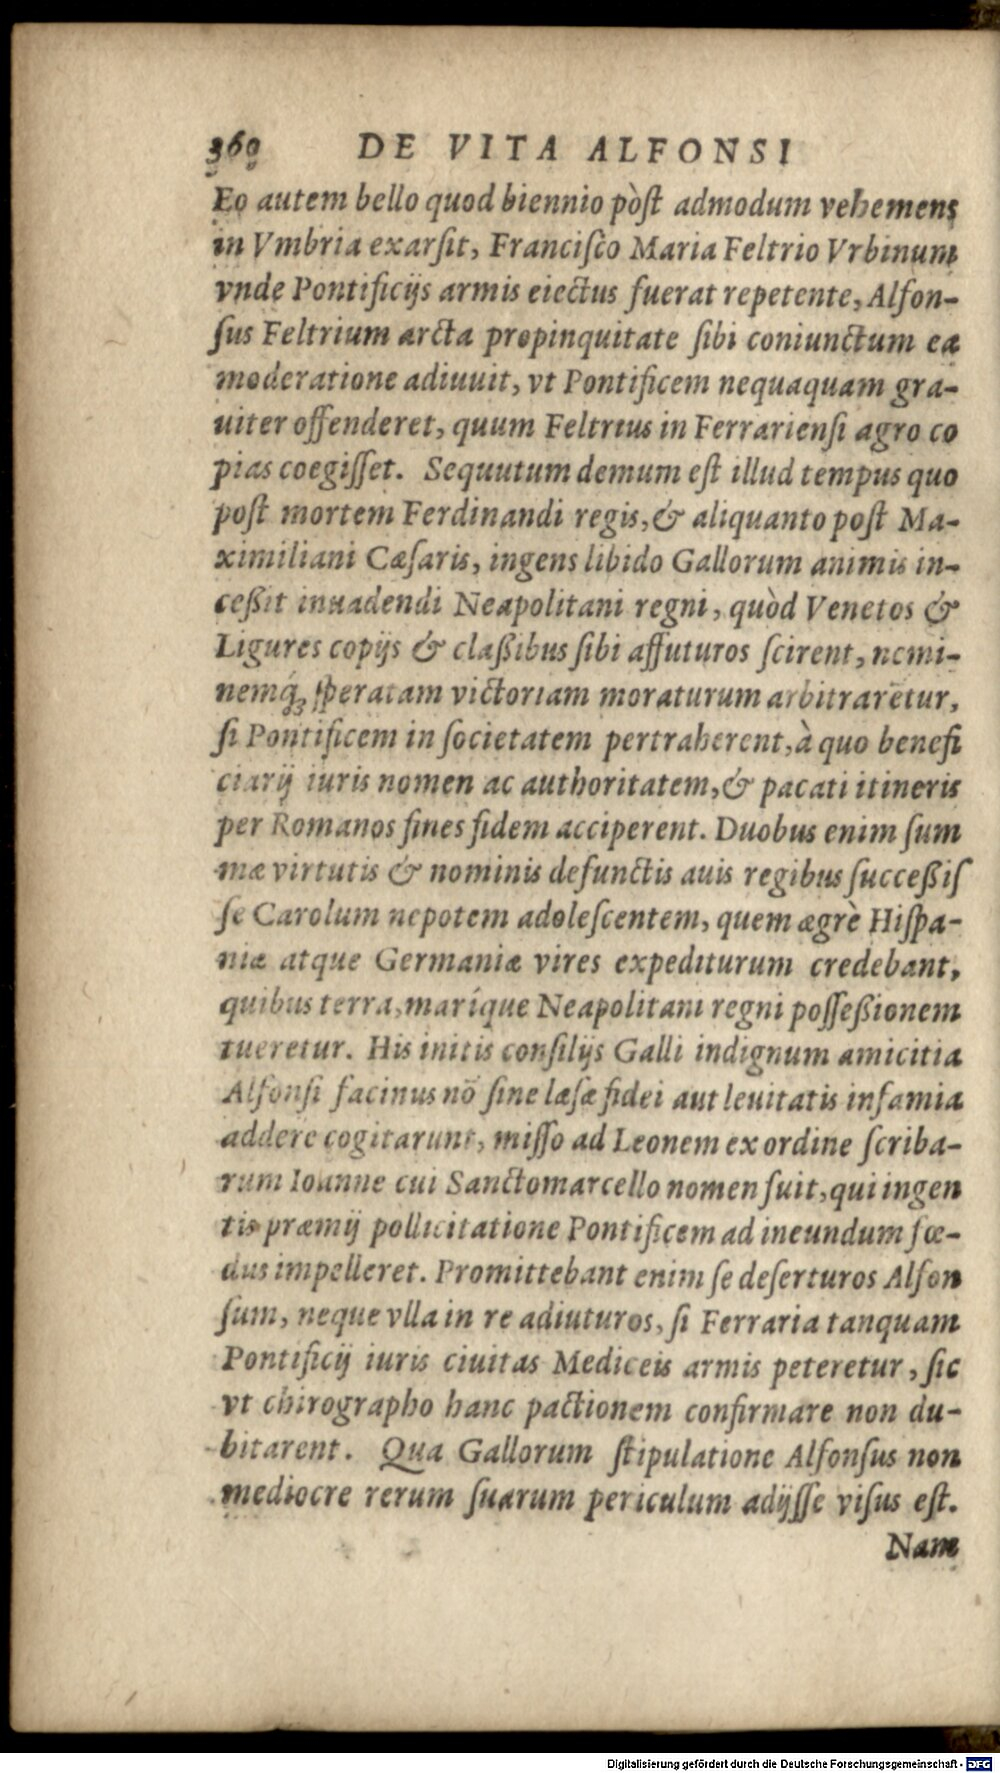 360 DE VITA ALFONSI
Eo autem bello quod biennio pòſt admodum vehemens
in Vmbria exarſit, Franciſco Maria Feltrio Vrbinum
vnde Pontificijs armis eiectus fuerat repetente, Alfon-
ſus Feltrium arcta propinquitate ſibi coniunctum ea
moderatione adiuuit, vt Pontificem nequaquam gra-
uiter offenderet, quum Feltrius in Ferrarienſi agro co
pias coegiſſet. Sequutum demum eſt illud tempus quo
poſt mortem Ferdinandi regis, & aliquanto poſt Ma-
ximiliani Cæſaris, ingens libido Gallorum animis in-
ceßit inuadendi Neapolitani regni, quòd Venetos &
Ligures copijs & claßibus ſibi affuturos ſcirent, nemi-
nemq́ꝫ ſperatam victoriam moraturum arbitrarētur,
ſi Pontificem in ſocietatem pertraherent, à quo benefi
ciarij iuris nomen ac authoritatem, & pacati itineris
per Romanos fines fidem acciperent. Duobus enim ſum
mæ virtutis & nominis defunctis auis regibus ſucceßiſ
ſe Carolum nepotem adoleſcentem, quem ægrè Hiſpa-
niæ atque Germaniæ vires expediturum credebant,
quibus terra, maríque Neapolitani regni poſſeßionem
tueretur. His initis conſilijs Galli indignum amicitia
Alfonſi facinus nō ſine læſæ fidei aut leuitatis infamia
addere cogitarunt, miſſo ad Leonem ex ordine ſcriba-
rum Ioanne cui Sanctomarcello nomen fuit, qui ingen
tis præmij pollicitatione Pontificem ad ineundum fœ-
dus impelleret. Promittebant enim ſe deſerturos Alfon
ſum, neque vlla in re adiuturos, ſi Ferraria tanquam
Pontificij iuris ciuitas Mediceis armis peteretur, ſic
vt chirographo hanc pactionem confirmare non du-
bitarent. Qua Gallorum ſtipulatione Alfonſus non
mediocre rerum ſuarum periculum adijſſe viſus eſt.
Nam
Digitalisierung gefördert durch die Deutsche Forschungsgemeinschaft - DFG